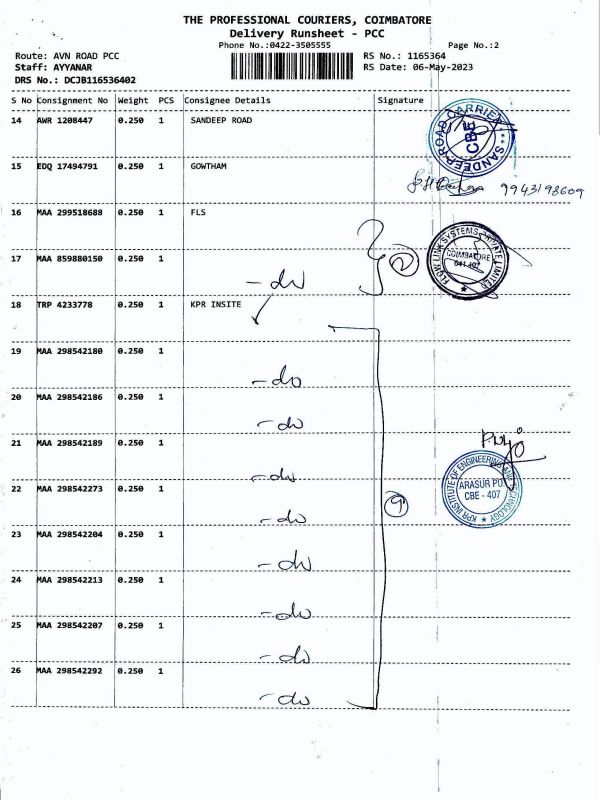 THE PROFESSIONAL COURIERS, COIMBATORE
Delivery Runsheet - PCC
Phone No.:0422-3505555 Page No.:2
Route: AVN ROAD PCC RS No.: 1165364
Staff: AYYANAR RS Date: 06-May-2023
DRS No.: DCJB116536402
S No Consignment No Weight PCS Consignee Details Signature
14 AWR 1208447 0.250 1 SANDEEP ROAD
SANDEEP ROAD CARRIER
CBE
15 EDQ 17494791 0.250 1 GOWTHAM
9943198609
16 MAA 299518688 0.250 1 FLS
FLOW LINK SYSTEMS PRIVATE LIMITED
COIMBATORE
641 407
2
17 MAA 859880150 0.250 1
- do
18 TRP 4233778 0.250 1 KPR INSITE
19 MAA 298542180 0.250 1
- do
20 MAA 298542186 0.250 1
- do
21 MAA 298542189 0.250 1
- do
KPR INSTITUTE OF ENGINEERING AND TECHNOLOGY
ARASUR PO
CBE - 407
22 MAA 298542273 0.250 1
9
- do
23 MAA 298542204 0.250 1
- do
24 MAA 298542213 0.250 1
- do
25 MAA 298542207 0.250 1
- do
26 MAA 298542292 0.250 1
- do